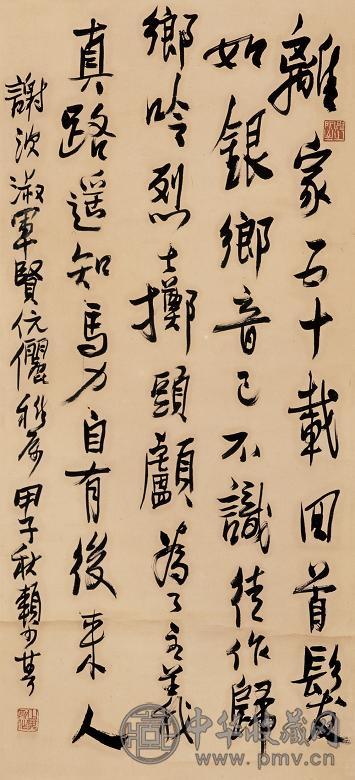 離家五十載回首鬢
如銀鄉音已不識徒作歸
鄉吟烈士擲頭顱為了主義
真路遙知馬力自有後來人
謝淑軍賢伉儷雅属甲子秋賴少其
中华收藏网
www.pmv.cn